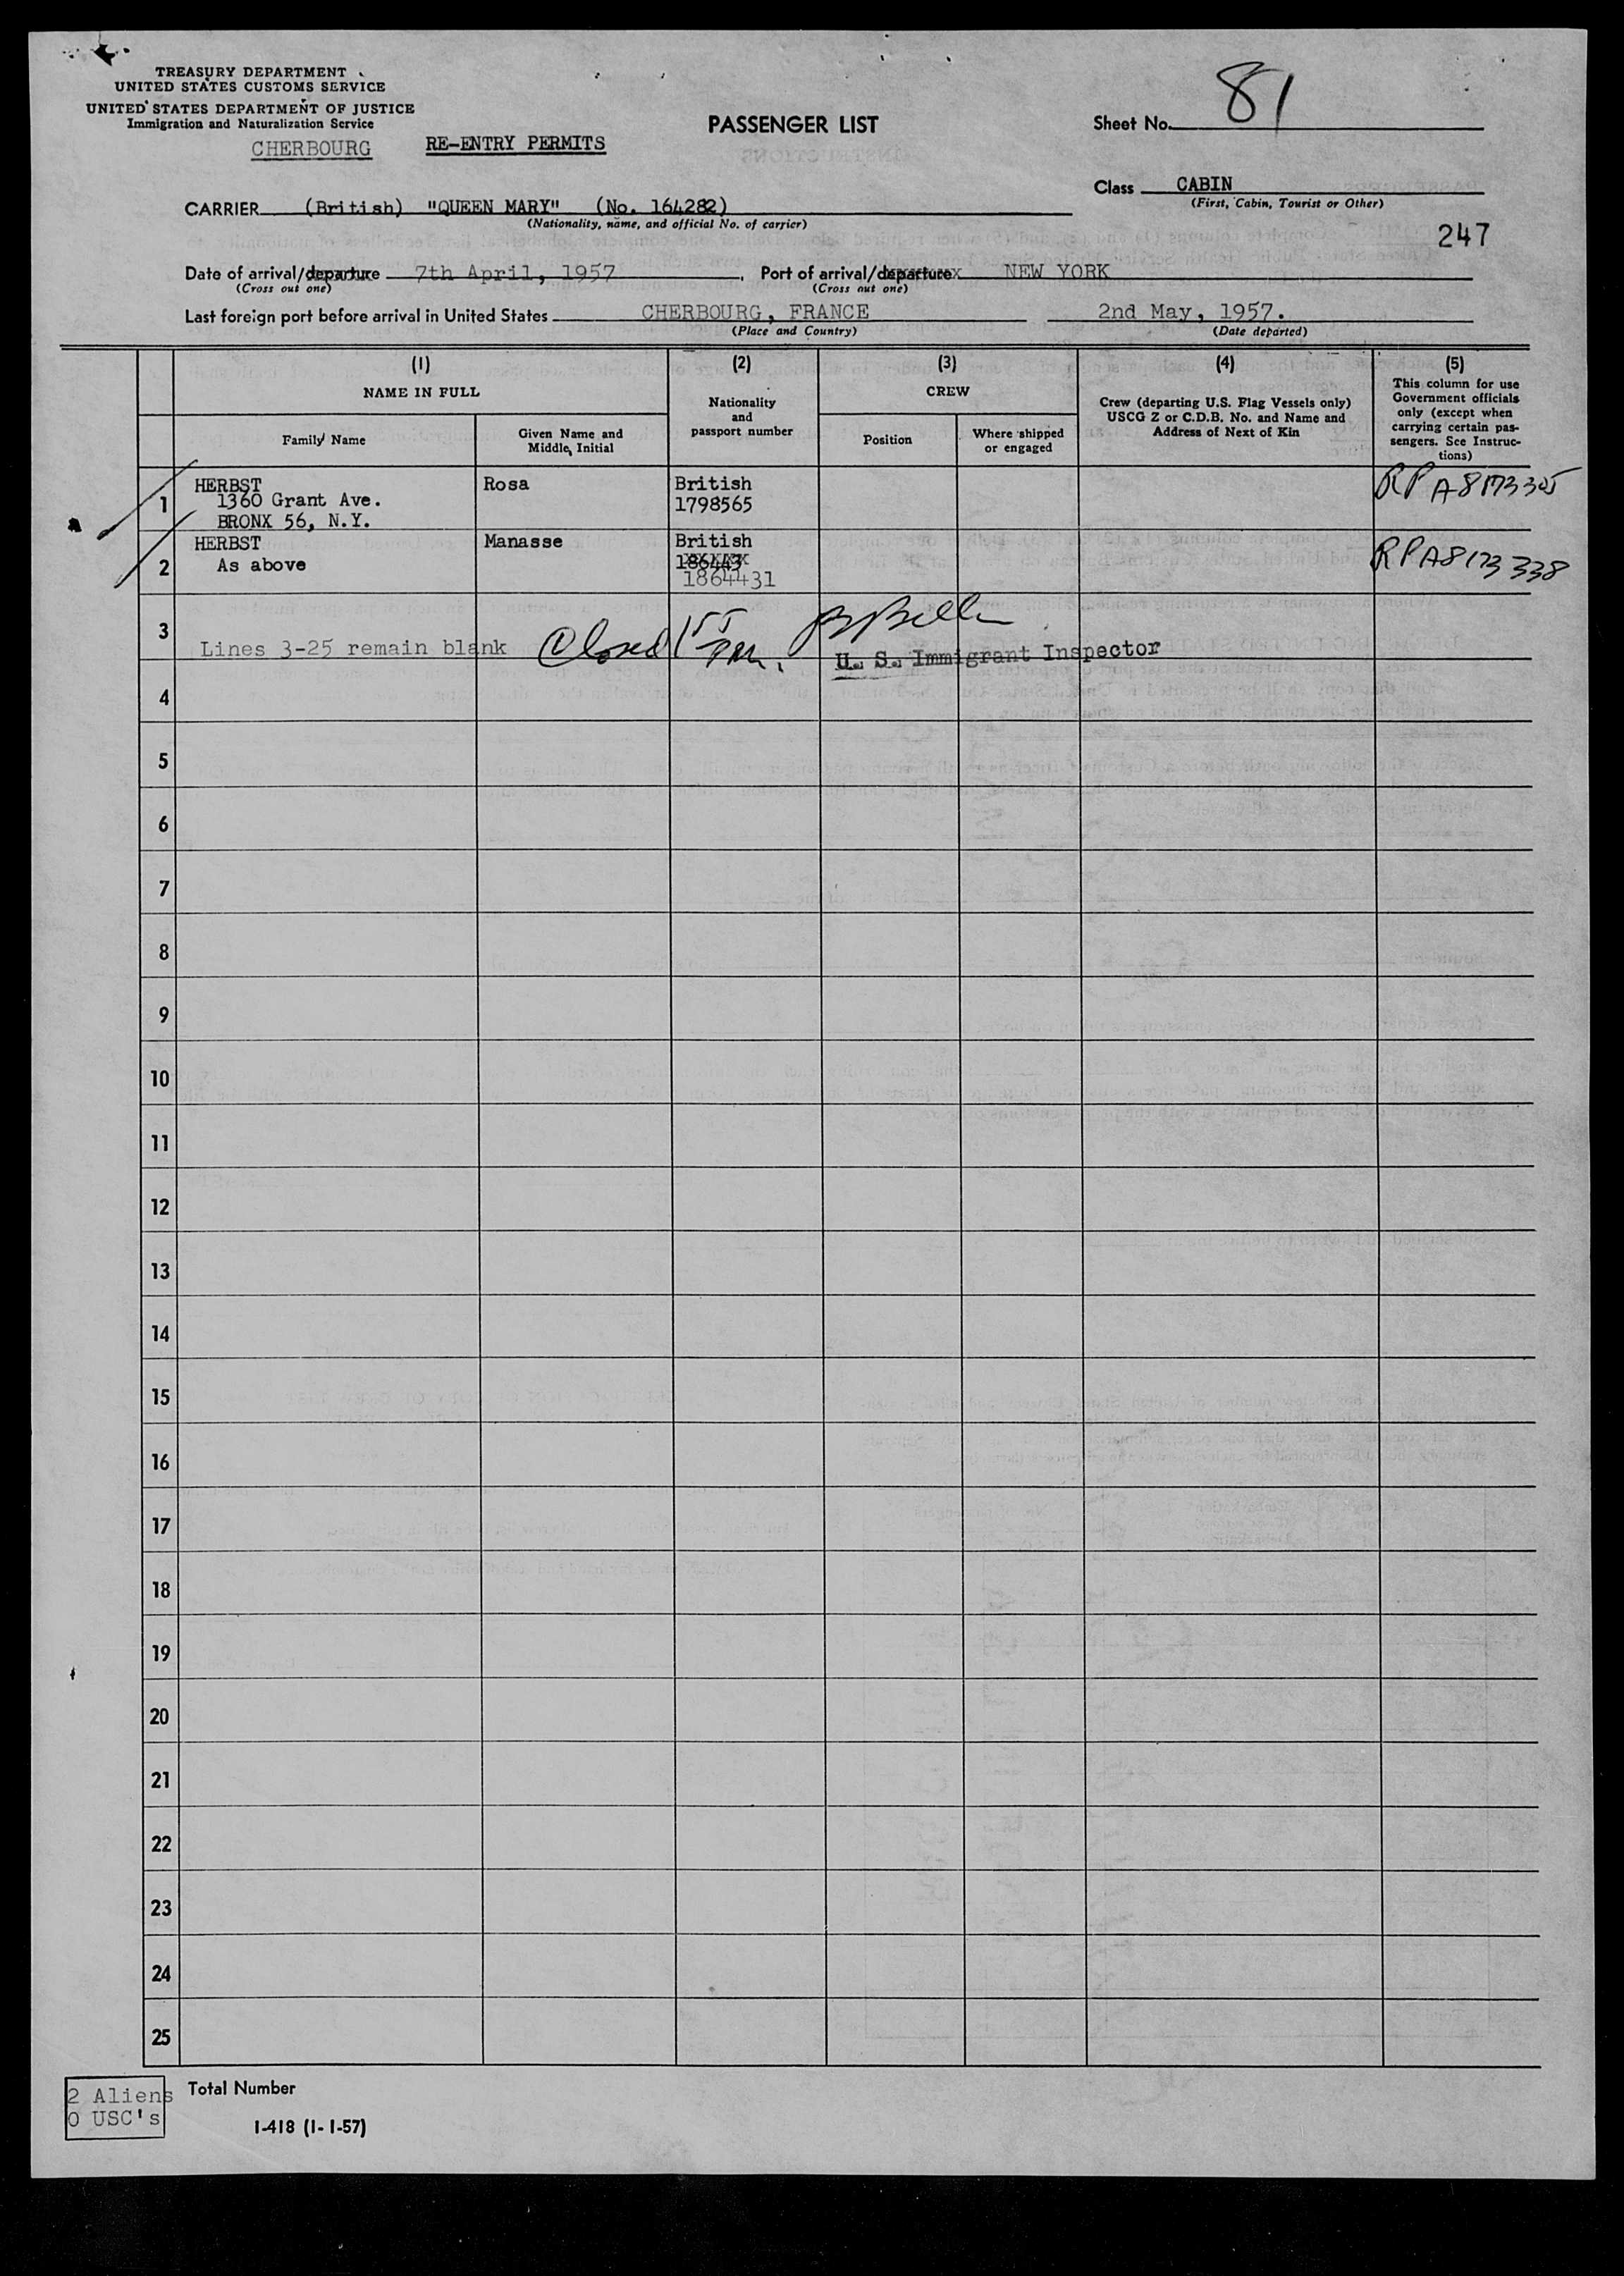 TREASURY DEPARTMENT
UNITED STATES CUSTOMS SERVICE
UNITED STATES DEPARTMENT OF JUSTICE
Immigration and Naturalization Service
CHERBOURG
RE-ENTRY PERMITS
PASSENGER LIST
Sheet No. 81
Class CABIN
(First, Cabin, Tourist or Other)
CARRIER (British) "QUEEN MARY" (No. 164282)
(Nationality, name, and official No. of carrier)
247
Date of arrival/departure 7th April, 1957 Port of arrival/departure NEW YORK
(Cross out one) (Cross out one)
Last foreign port before arrival in United States CHERBOURG, FRANCE 2nd May, 1957.
(Place and Country) (Date departed)
(1) (2) (3) (4) (5)
NAME IN FULL
Nationality
and
passport number
CREW
Crew (departing U.S. Flag Vessels only)
USCG Z or C.D.B. No. and Name and
Address of Next of Kin
This column for use
Government officials
only (except when
carrying certain pas-
sengers. See Instruc-
tions)
Family Name
Given Name and
Middle Initial
Position
Where shipped
or engaged
1 HERBST Rosa British
1360 Grant Ave. 1798565
BRONX 56, N.Y.
RP A8173305
2 HERBST Manasse British
As above 186443
1864431
RP A8173338
3
Lines 3-25 remain blank Closed
U. S. Immigrant Inspector
4
5
6
7
8
9
10
11
12
13
14
15
16
17
18
19
20
21
22
23
24
25
2 Aliens
0 USC's
Total Number
I-418 (1-1-57)